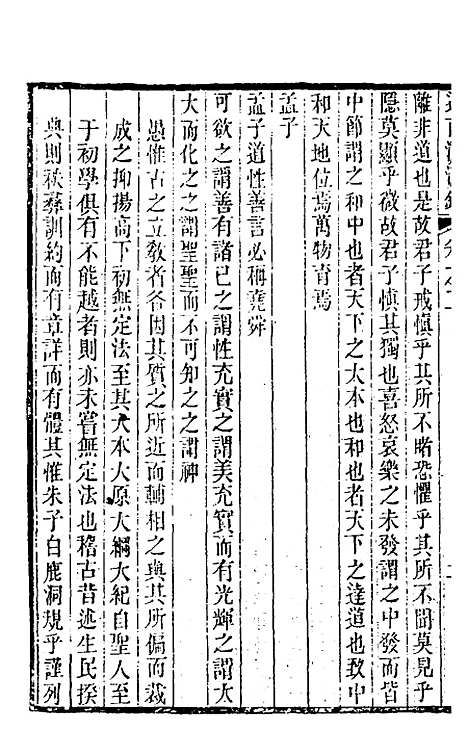 離非道也是故君子戒慎乎其所不睹恐懼乎其所不聞莫見乎
隱莫顯乎微故君子慎其獨也喜怒哀樂之未發謂之中發而皆
中節謂之和中也者天下之大本也和也者天下之達道也致中
和天地位焉萬物育焉
孟子
孟子道性善言必稱堯舜
可欲之謂善有諸己之謂性充實之謂美充實而有光輝之謂大
大而化之之謂聖聖而不可知之之謂神
愚惟古之立教者各因其質之所近而輔相之與其所偏而裁
成之抑揚高下初無定法至其大本大原大綱大紀自聖人至
于初學俱有不能越者則亦未嘗無定法也稽古昔述生民揆
典則秩彝訓約而有章詳而有體其惟朱子白鹿洞規乎謹列